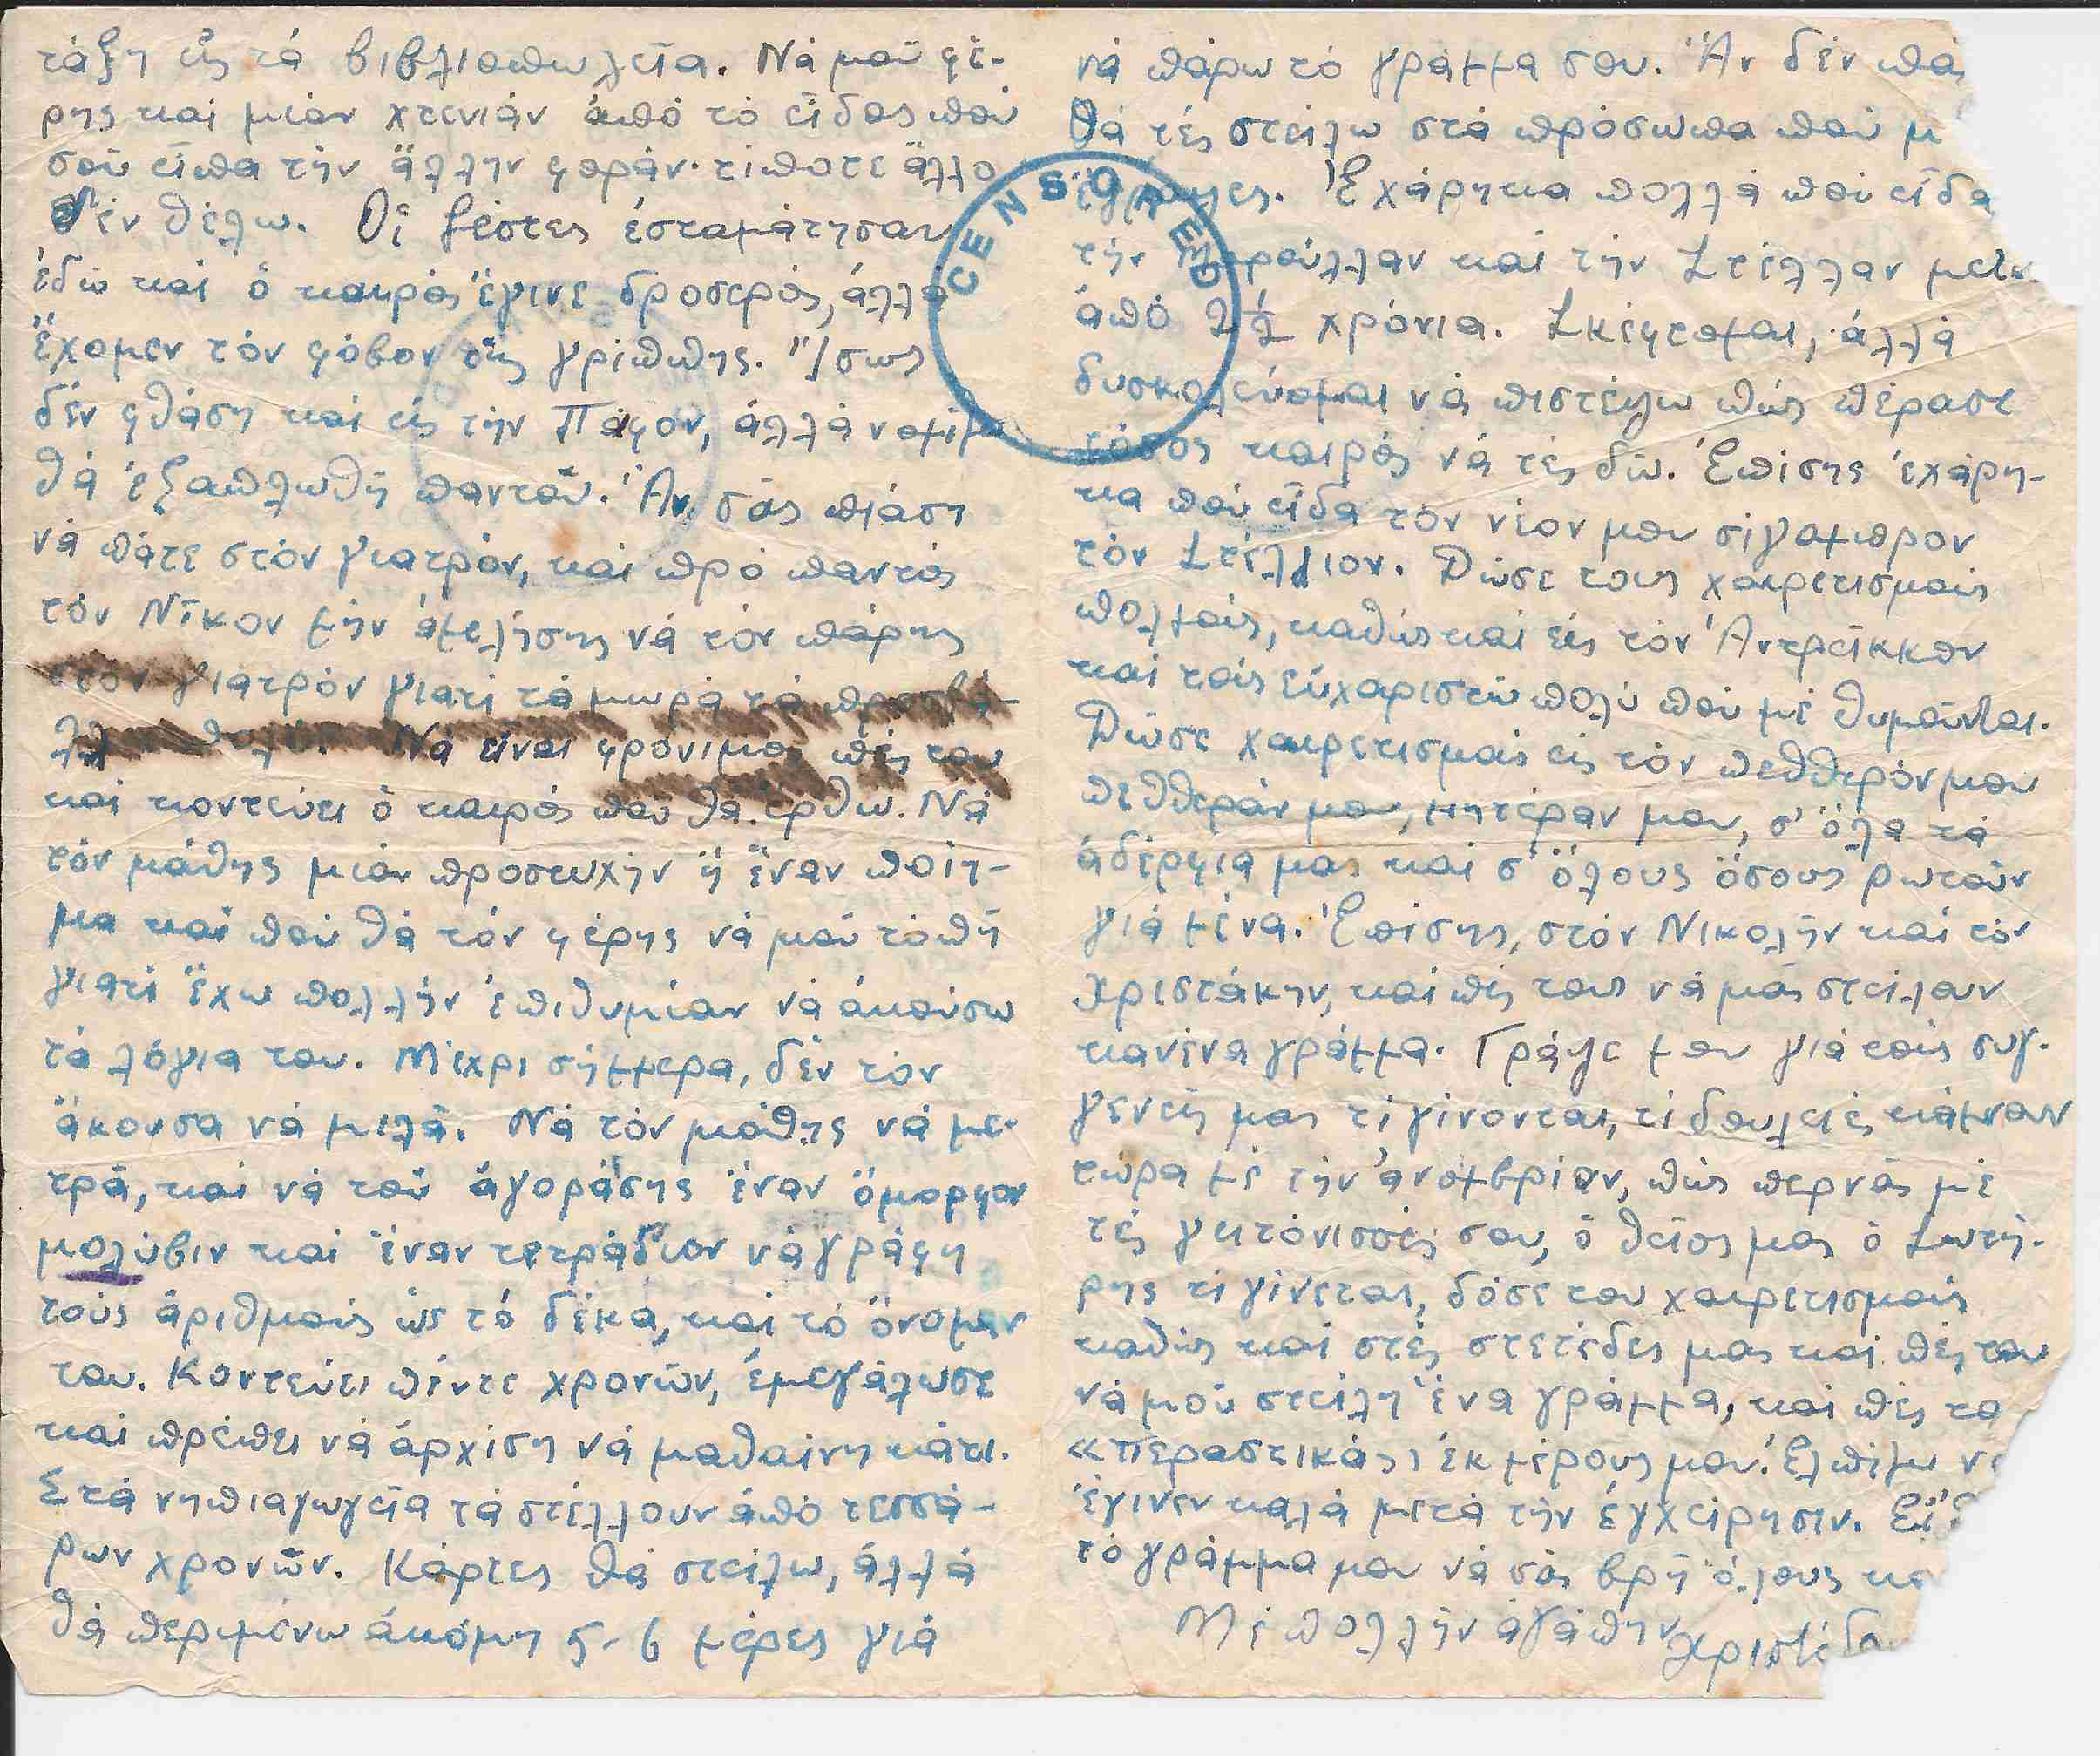 τάξη εἰς τά βιβλιοπωλεῖα. Νά μοῦ φέ-
ρης καί μίαν χτενιάν ἀπό τό εἶδος πού
σοῦ εἶπα τήν ἄλλην φοράν· τίποτε ἄλλο
δέν θέλω. Οἱ ζέστες ἐσταμάτησαν
ἐδῶ καί ὁ καιρός ἔγινε δροσερός, ἀλλά
ἔχομεν τόν φόβον τῆς γρίππης. Ἴσως
δέν φθάση καί εἰς τήν Πάφον, ἀλλά νομίζω
θά ἐξαπλωθῆ παντοῦ. Ἄν σᾶς πιάση
νά πᾶτε στόν γιατρόν, καί πρό παντός
τόν Νῖκον μήν ἀμελήσης νά τόν πάρης
στόν γιατρόν γιατί τά μωρά τά προσβά-
λλ Νά εἶναι φρόνιμος πές του
καί κοντεύει ὁ καιρός πού θά ἔρθω. Νά
τόν μάθης μιάν προσευχήν ἤ ἕναν ποίη-
μα καί πού θά τόν φέρης νά μοῦ τό πῆ
γιατί ἔχω πολλήν ἐπιθυμίαν νά ἀκούσω
τά λόγια του. Μέχρι σήμμερα, δέν τόν
ἄκουσα νά μιλᾶ. Νά τόν μάθης νά με-
τρᾶ, καί νά τοῦ ἀγοράσης ἕναν ὄμορφον
μολύβιν καί ἕναν τετράδιον νά γράφη
τούς ἀριθμούς ὡς τό δέκα, καί τό ὄνομαν
του. Κοντεύει πέντε χρονῶν, ἐμεγάλωσε
καί πρέπει νά ἀρχίση νά μαθαίνη κάτι.
Στά νηπιαγωγεῖα τά στέλλουν ἀπό τεσσά-
ρων χρονῶν. Κάρτες θά στείλω, ἀλλά
θά περιμένω ἀκόμη 5-6 μέρες γιά
CENSORED
νά πάρω τό γράμμα σου. Ἄν δέν πάς
θά τές στείλω στά πρόσωπα πού μ
ἔγραψες. Ἐχάρηκα πολλά πού εἶδα
τήν Μαρούλλαν καί τήν Στέλλαν μετά
ἀπό 2½ χρόνια. Σκέφτομαι, ἀλλά
δυσκολεύομαι νά πιστέψω πώς πέρασε
τόσος καιρός νά τές δῶ. Ἐπίσης ἐχάρη-
κα πού εἶδα τόν νέον μου σύγαμπρον
τόν Στέλλιον. Δῶσε τους χαιρετισμούς
πολλούς, καθώς καί εἰς τόν Ἀντρεῖκκον
καί τούς εὐχαριστῶ πολύ πού μέ θυμοῦνται.
Δῶσε χαιρετισμούς εἰς τόν πεθθερόν μου
πεθθεράν μου, μητέραν μου, σ' ὅλα τά
ἀδέρφια μας καί σ' ὅλους ὅσους ρωτοῦν
γιά μένα. Ἐπίσης, στόν Νικολήν καί τόν
Χριστάκην, καί πές τους νά μᾶς στείλουν
κανένα γράμμα. Γράψε μου γιά τούς συγ-
γενεῖς μας τί γίνονται, τί δουλειές κάμνουν
τώρα μέ τήν ἀνομβρίαν, πῶς περνᾶς μέ
τές γειτόνισσές σου, ὁ θεῖος μας ὁ Σωτή-
ρης τί γίνεται, δόσε του χαιρετισμούς
καθώς καί στές στετέδες μας καί πές του
νά μοῦ στείλη ἕνα γράμμα, καί πές το
«περαστικά» ἐκ μέρους μου. Ἐλπίζω ν
ἔγινεν καλά μετά τήν ἐγχείρησιν. Εὔ
τό γράμμα μου νά σᾶς βρῆ ὅλους κα
Μέ πολλήν ἀγάπην